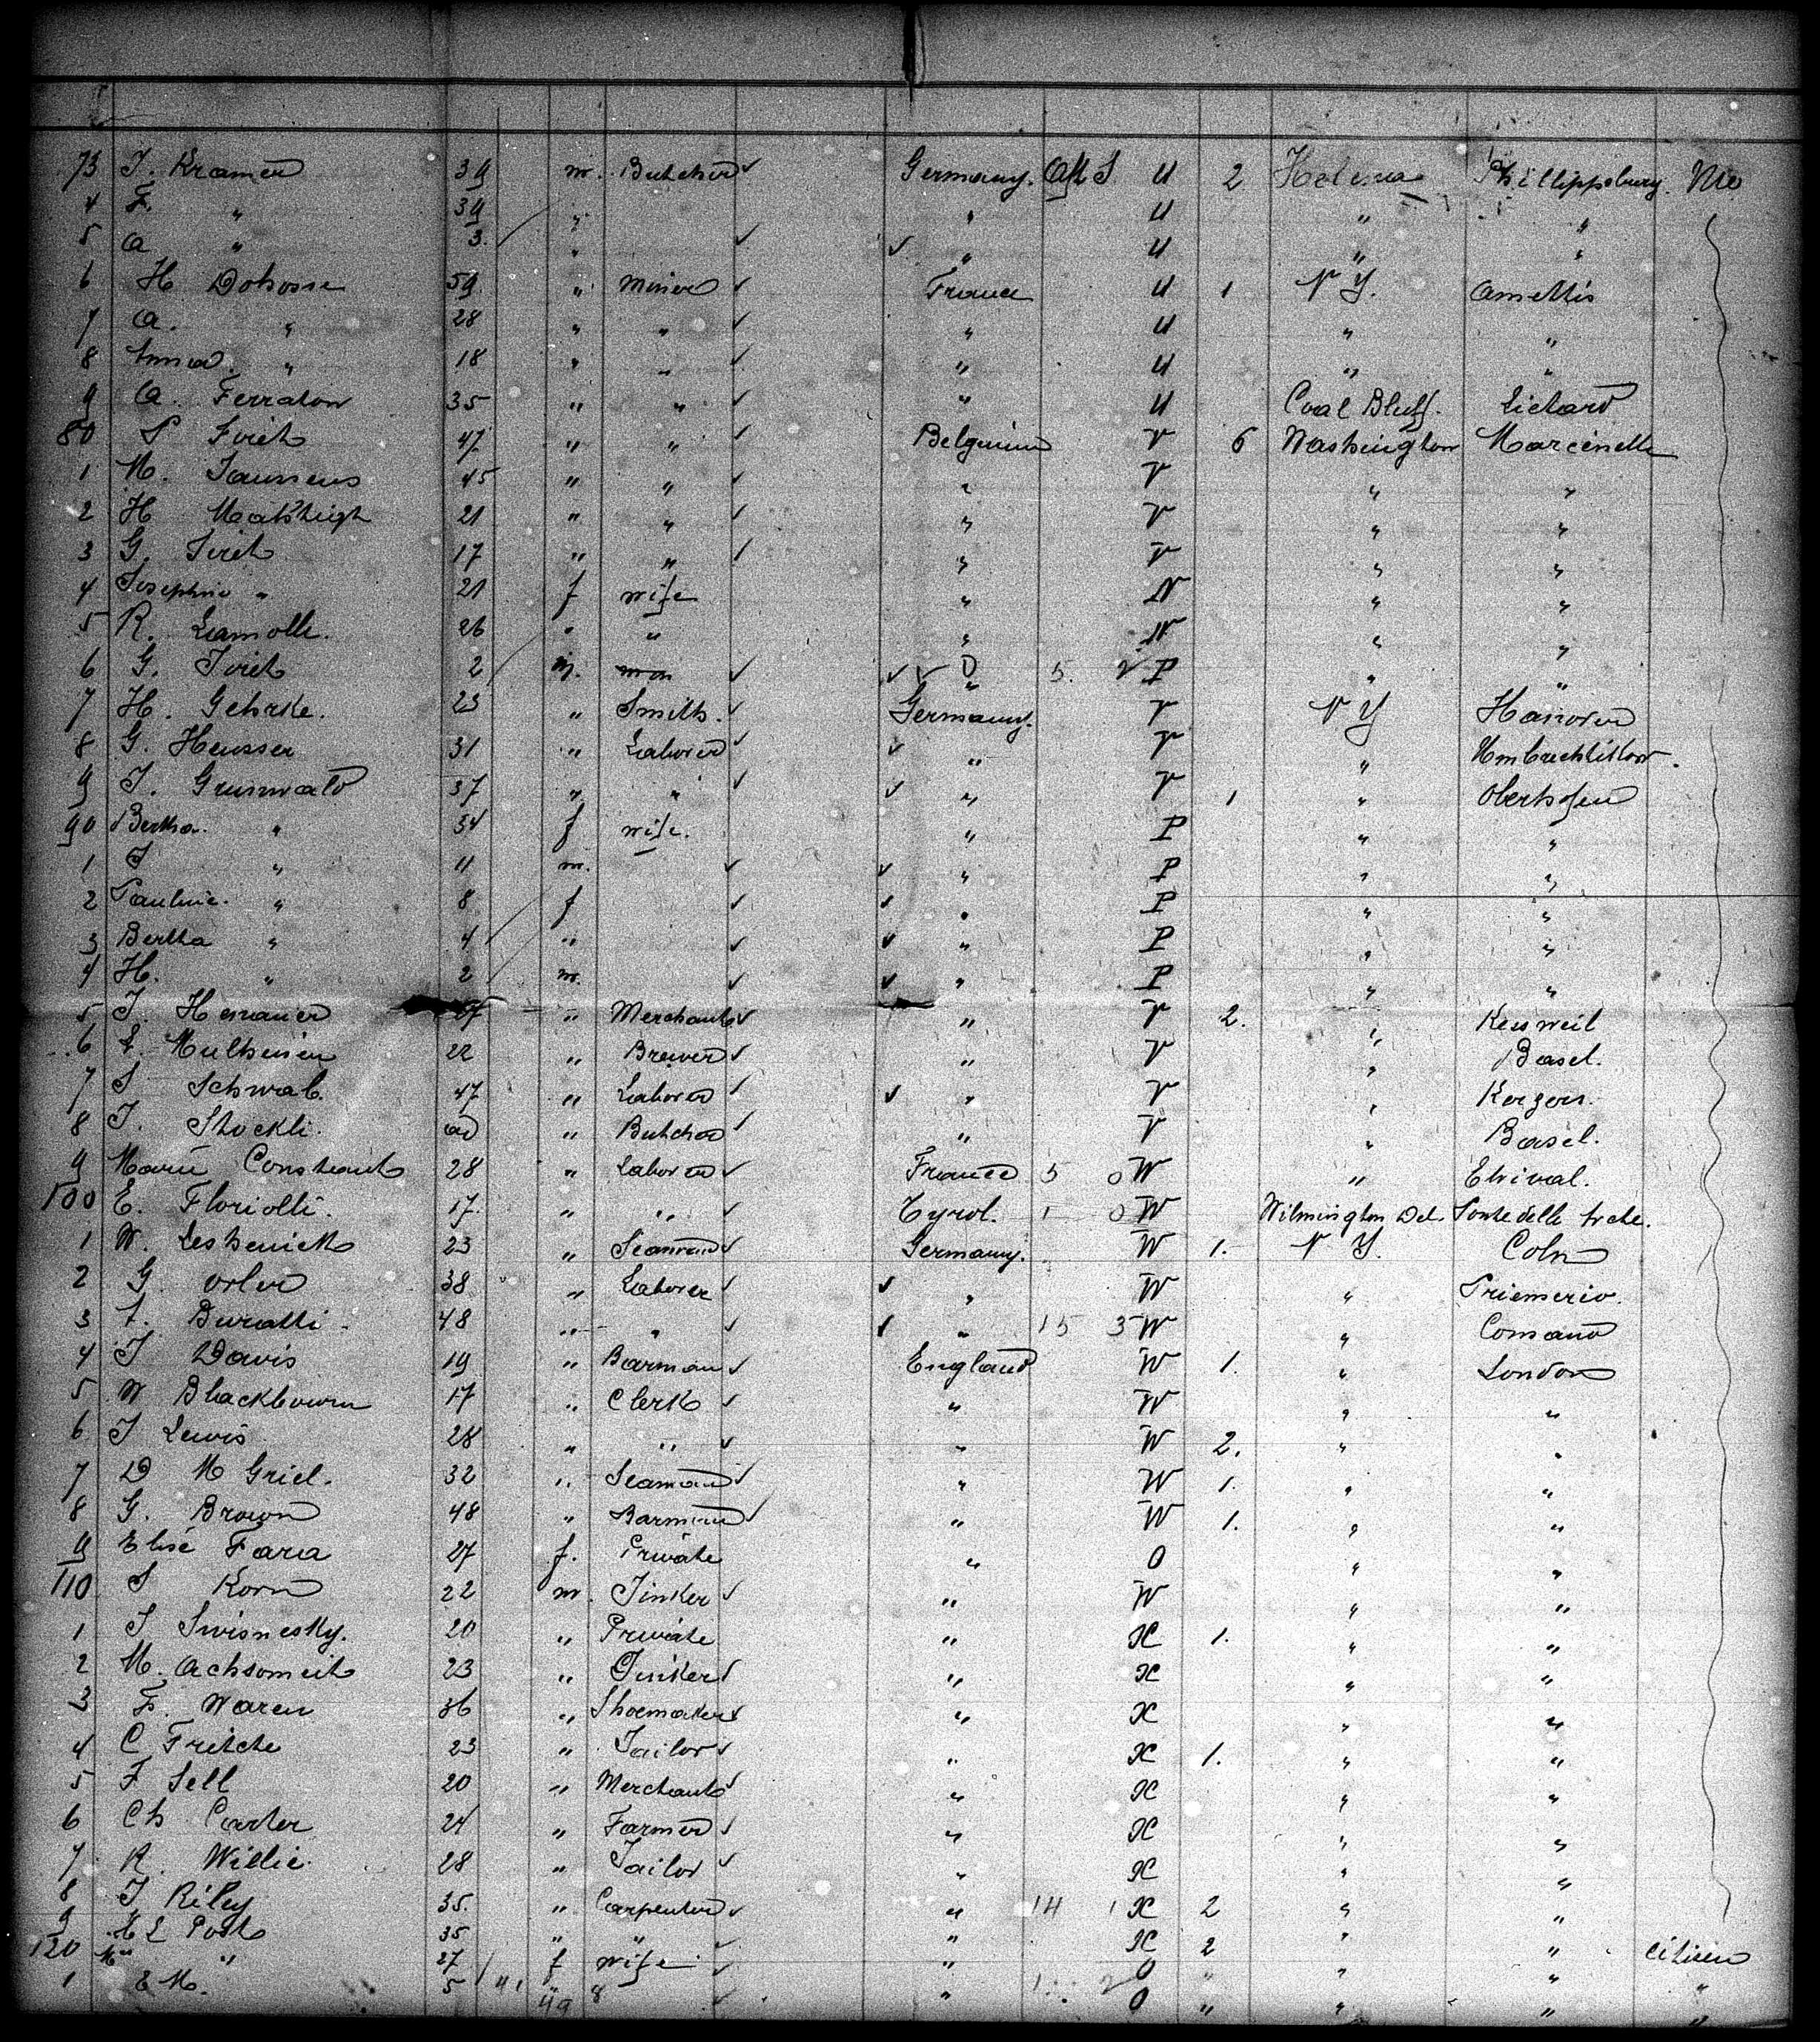 73 J. Kramer 39 m. Butcher ✓ Germany. Aft S U 2 Helena Phillippsburg. No
4 F. " 39 " " U " "
5 A " 3. " ✓ ✓ " U " "
6 H 59 " Miner ✓ France U 1 N Y.
7 A. " 28 " " ✓ " U " "
8 " 18 " " ✓ " U " "
9 A. Ferraton 35 " " ✓ " U Coal Bluff.
80 47 " " ✓ Belguim V 6 Washington Marcinelle
1 M. Janssens 45 " " ✓ " V " "
2 H 21 " " ✓ " V " "
3 G. 17 " " " V " "
4 Josephine " 21 f wife " N " "
5 R. Lamolle. 26 " " " N " "
6 G. 2 m. ✓ ✓ ✓ " 5. 2 P " "
7 H. Gehrke. 23 " Smith. ✓ Germany. V N Y Hanover
8 G. Heusser 31 " Laborer ✓ ✓ " V "
9 J. Grunwald 37 " " ✓ ✓ " V 1 " Oberhofen
90 Bertha. " 34 f wife. " P " "
1 J " 11 m. ✓ ✓ " P " "
2 Pauline. " 8 f ✓ ✓ " P " "
3 Bertha " 4 " ✓ ✓ " P " "
4 H. " 2 m. ✓ ✓ " P " "
5 J. " Merchant ✓ " V 2. " Kessweil
6 22 " Brewer ✓ " V " Basel.
7 S Schwab. 47 " Laborer ✓ ✓ " V " Kerzers.
8 J. Stockli. " Butcher ✓ " V " Basel.
9 Marie Constant 28 " Laborer ✓ France 5 0 W " Etival.
100 E. Floriolli. 17. " " Tyrol. 1 0 W Wilmington Del.
1 W. 23 " Seaman ✓ Germany. W 1. N Y. Coln
2 G. Orler 38 " Laborer ✓ ✓ " W "
3 Buratti 48 " " ✓ ✓ " 15 3 W " Comano
4 J Davis 19 " Barman ✓ England W 1. " London
5 W Blackbourn 17 " Clerk ✓ " W " "
6 J Lewis 28 " " ✓ " W 2. " "
7 D M Griel. 32 " Seaman ✓ " W 1. " "
8 G. Brown 48 " Barman ✓ " W 1. " "
9 Elise Fara 27 f. Private " O " "
110 S Korn 22 m. Tinker ✓ " W " "
1 S Swisnesky. 20 " Private " X 1. " "
2 M. Achsomeit 23 " Tinker ✓ " X " "
3 F. Waren 36 " Shoemaker ✓ " X " "
4 C Fritche 23 " Tailor ✓ " X 1. " "
5 F Sell 20 " Merchant ✓ " X " "
6 Ch Carter 24 " Farmer ✓ " X " "
7 R. Willie. 28 " Tailor ✓ " X " "
8 J Riley 35. " Carpenter ✓ " 14 1 X 2 " "
9 L Post 35 " " ✓ " X 2 " " Citizen
120 Mrs " 27 f wife ✓ " O " " " "
1 E M. 5 " ✓ " 1 2 O " " " "
49 8